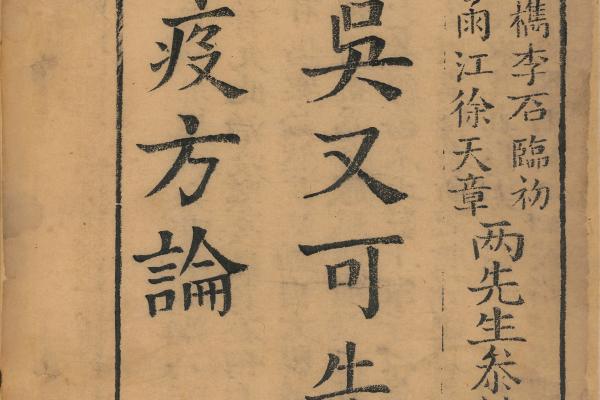 檇李石臨初
雨江徐天章
两先生叅
吳又可
疫方論